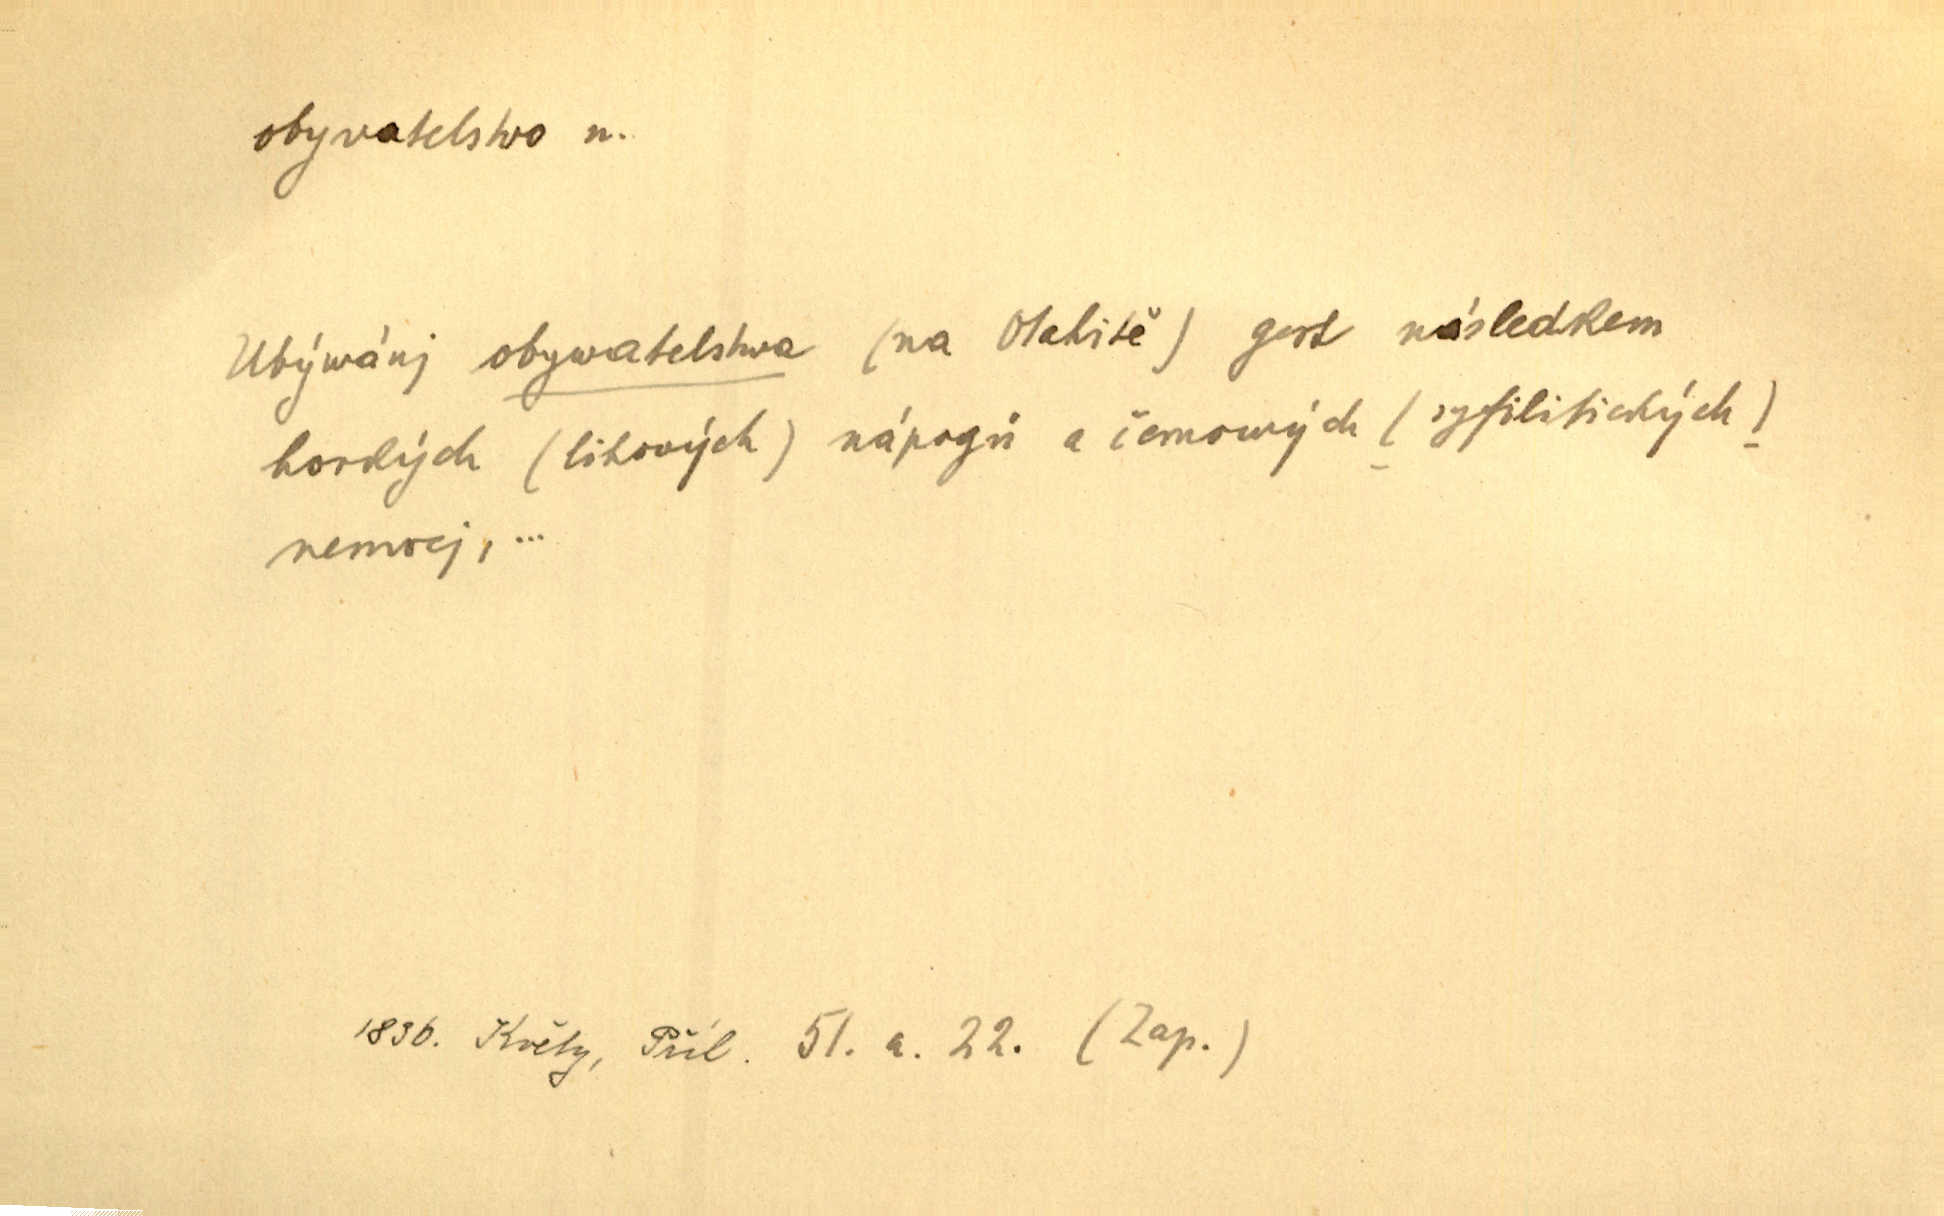 obyvatelstvo n.
Ubýwánj obywatelstwa (na Otahitě) gest následkem
horkých (lihových) nápogů a čemerowých (syfilitických)
nemocj, ...
1836. Květy, Příl. 51. a. 22. (Zap.)